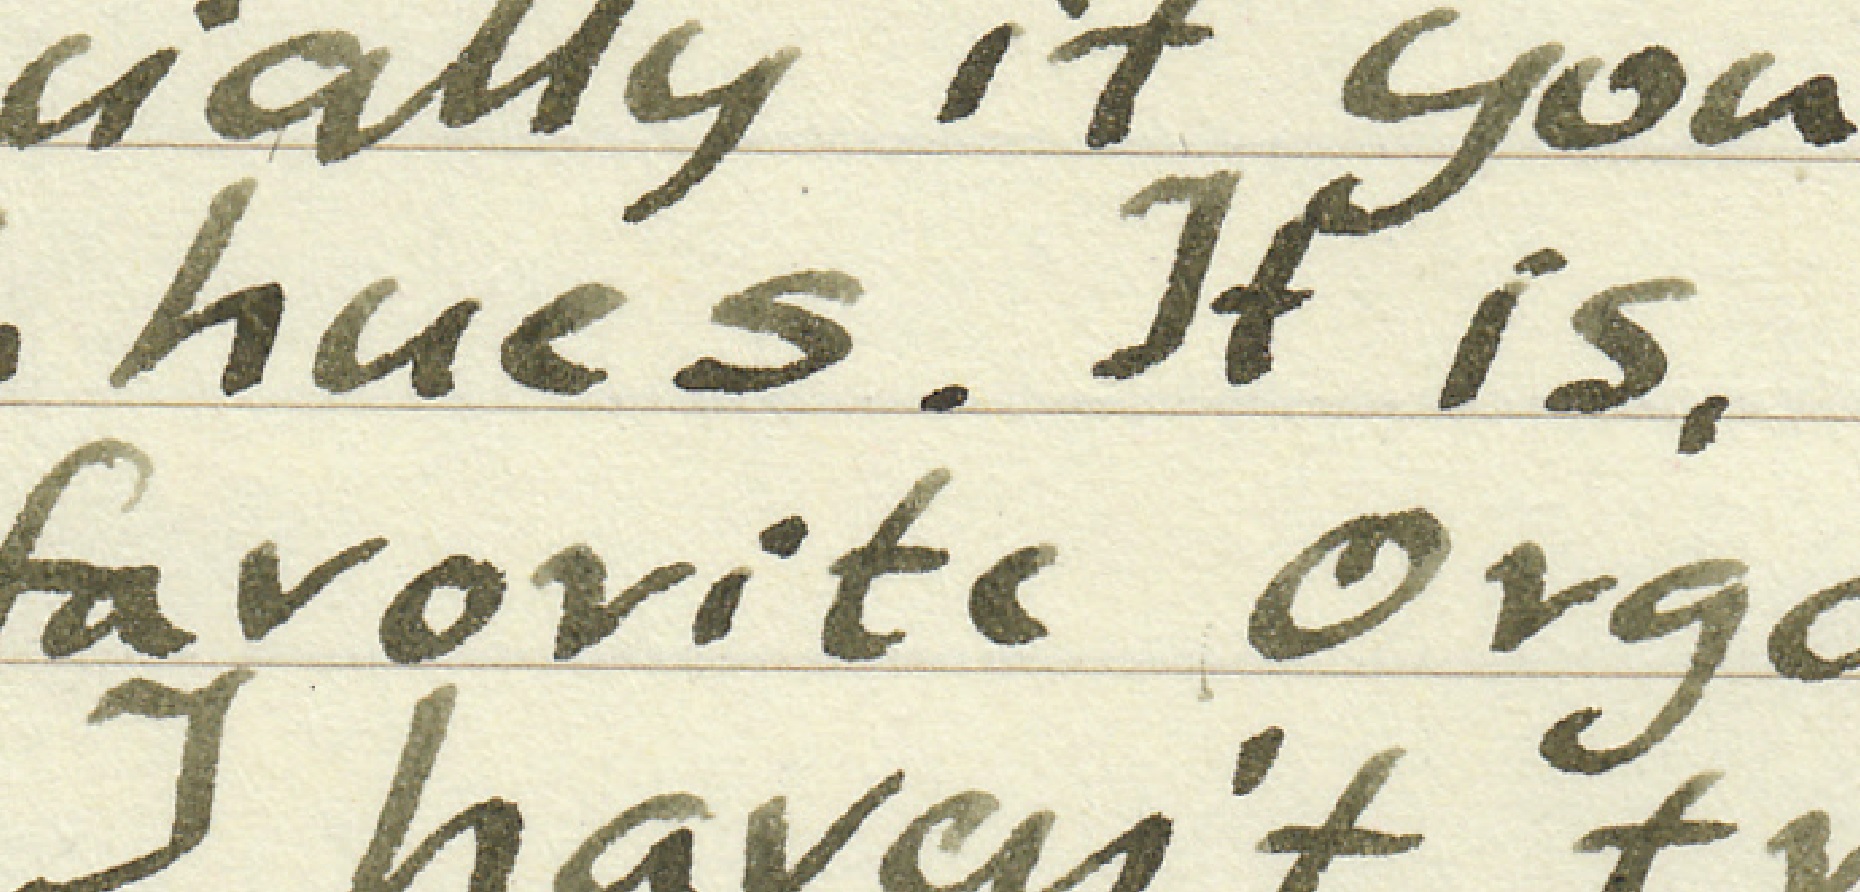 cially if you
hues. It is,
favorite Orga
I haven't tr